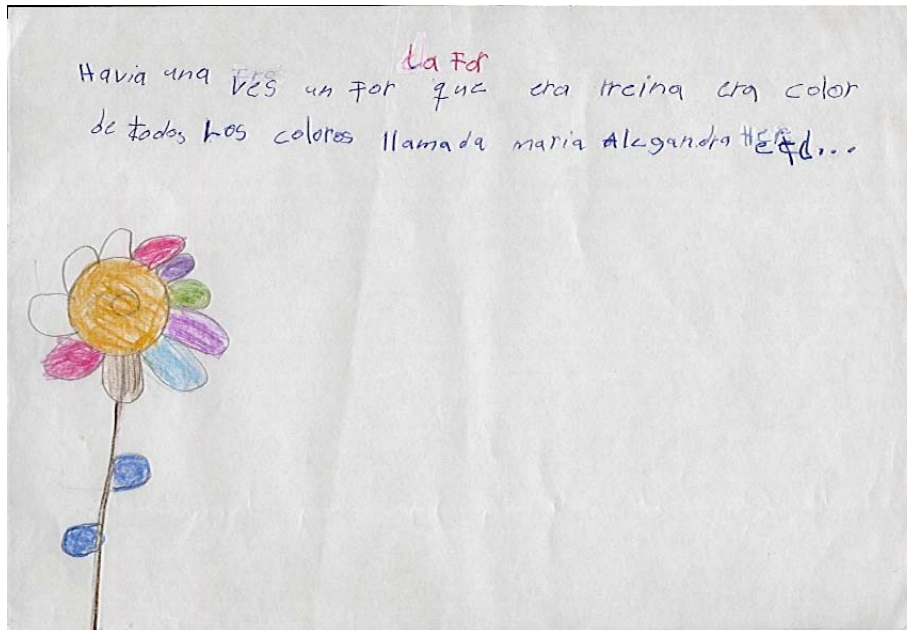 La For
Havia una ves un For que era rreina era color
de todos Los colores llamada maria Alegandra